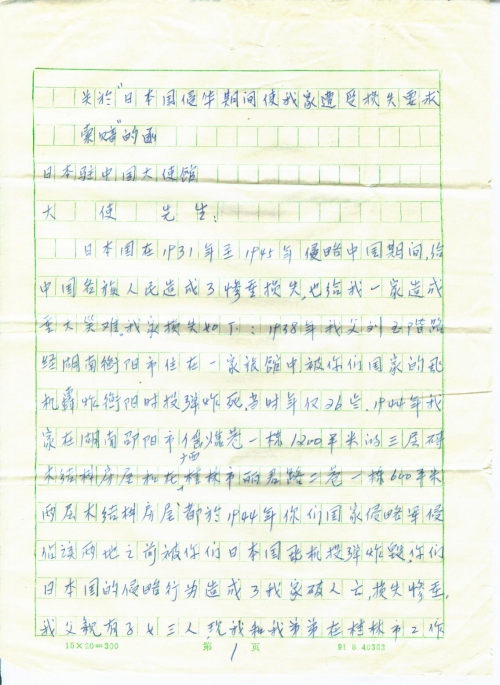 关於"日本国侵华期间使我家遭受损失要求
索赔"的函
日本驻中国大使馆
大使先生:
日本国在1931年至1945年侵略中国期间,给
中国各族人民造成了惨重损失,也给我一家造成
重大灾难,我家损失如下:1938年我父刘玉阶路
经湖南衡阳市住在一家旅馆中被你们国家的飞
机轰炸衡阳时投弹炸死,当时年仅26岁,1944年我
家在湖南邵阳市 巷一栋1200平米的三层砖
木结构房屋和在广西桂林市丽君路二巷一栋640平米
两层木结构房屋都於1944年你们国家侵略军侵
佔该两地之前被你们日本国飞机投弹炸毁,你们
日本国的侵略行为造成了我家破人亡,损失惨重,
我父亲有子女三人,现我和我弟弟在桂林市工作
15×20=300 第 1 页 91 8 40303